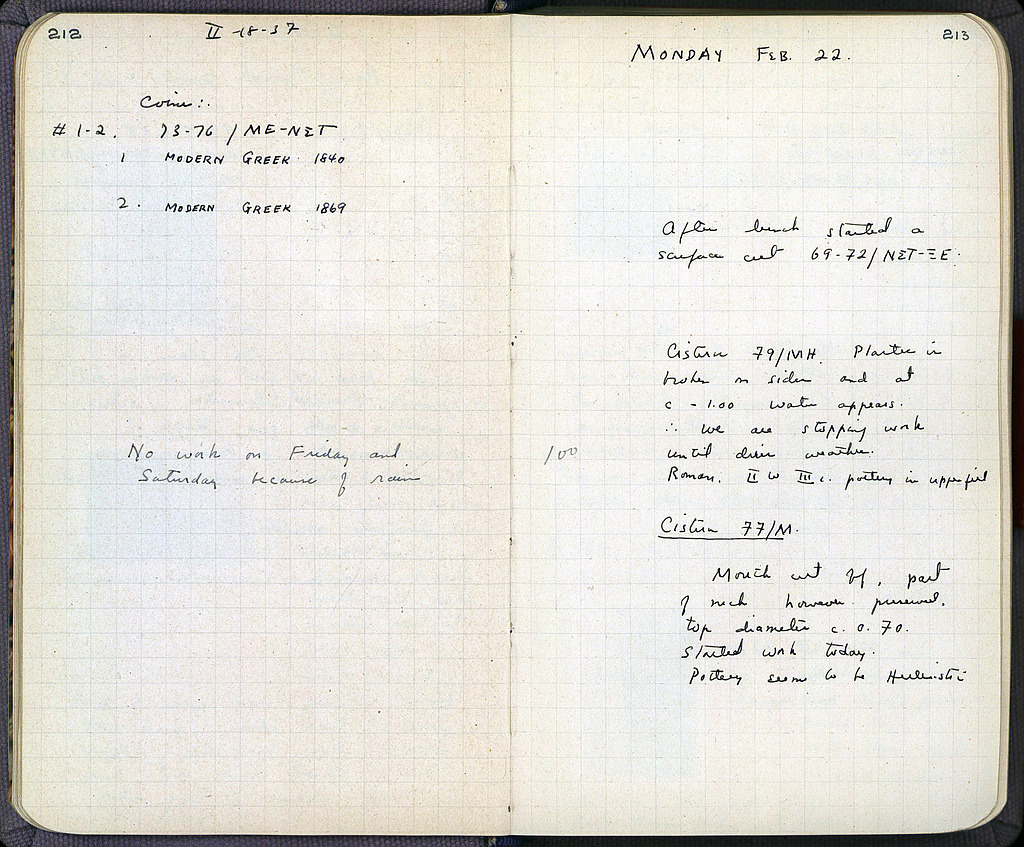 212
II-18-37
Coins:.
# 1-2. 73-76 / ME-NET
1 MODERN GREEK 1840
2. MODERN GREEK 1869
No work on Friday and
Saturday because of rain
213
MONDAY FEB. 22.
After lunch started a
surface cut 69-72/NET-ΞE.
100
Cistern 79/MH. Plaster is
broken on sides and at
c - 1.00 water appears.
∴ we are stopping work
until drier weather.
Roman. II to III c. pottery in upper fill
Cistern 77/M.
Mouth cut off, part
of neck however preserved.
top diameter c. 0.70.
Started work today.
Pottery seems to be Hellenistic